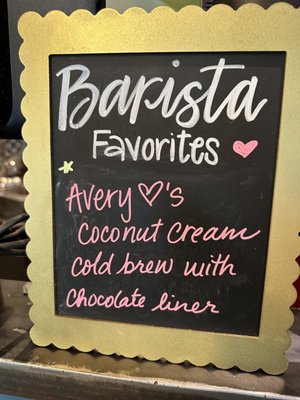 Barista
Favorites
Avery ♡'s
Coconut Cream
cold brew with
Chocolate liner